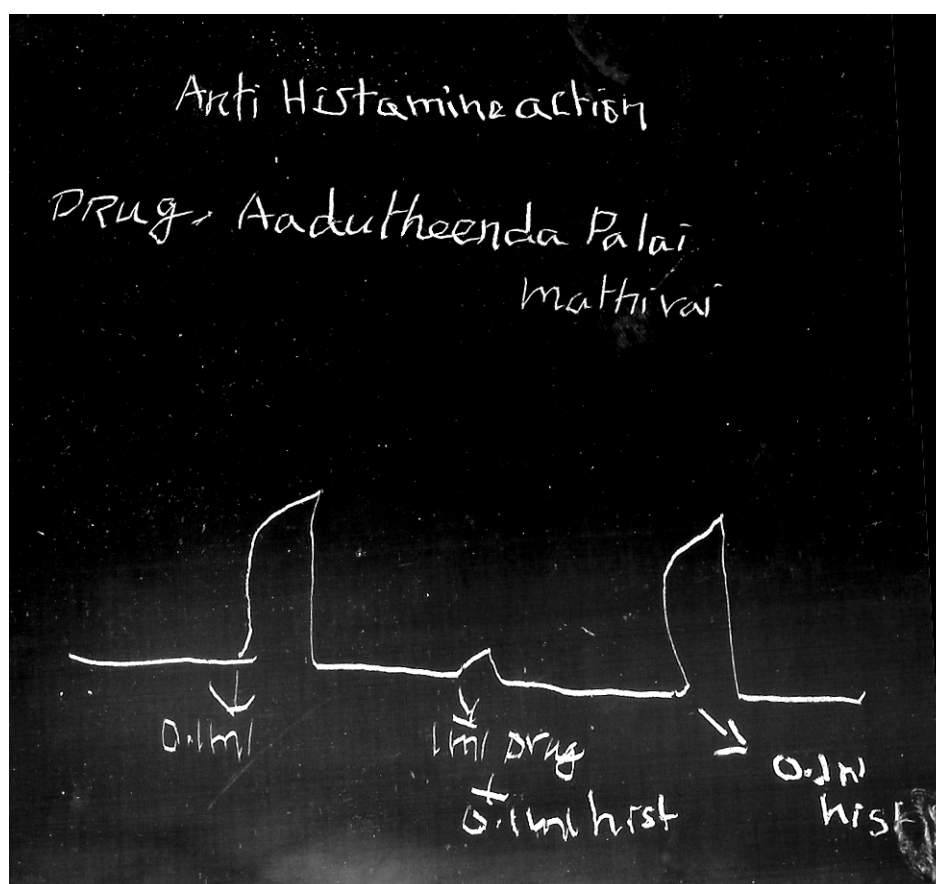 Anti Histamine action
DRug, Aadutheenda Palai
Mathirai
0.1ml
1ml Drug
+
0.1ml hist
0.1ml
hist